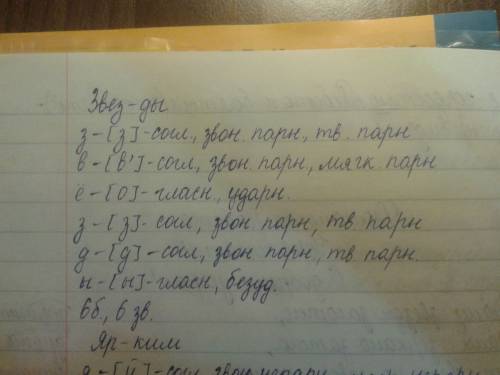 Звез-ды
з-[з]-согл, звон. парн, тв. парн
в-[в']-согл, звон. парн, мягк. парн
ё-[о]-гласн, ударн.
з-[з]-согл, звон. парн, тв. парн
д-[д]-согл, звон. парн, тв парн.
ы-[ы]-гласн, безуд.
6б, 6 зв.
Яр-ким